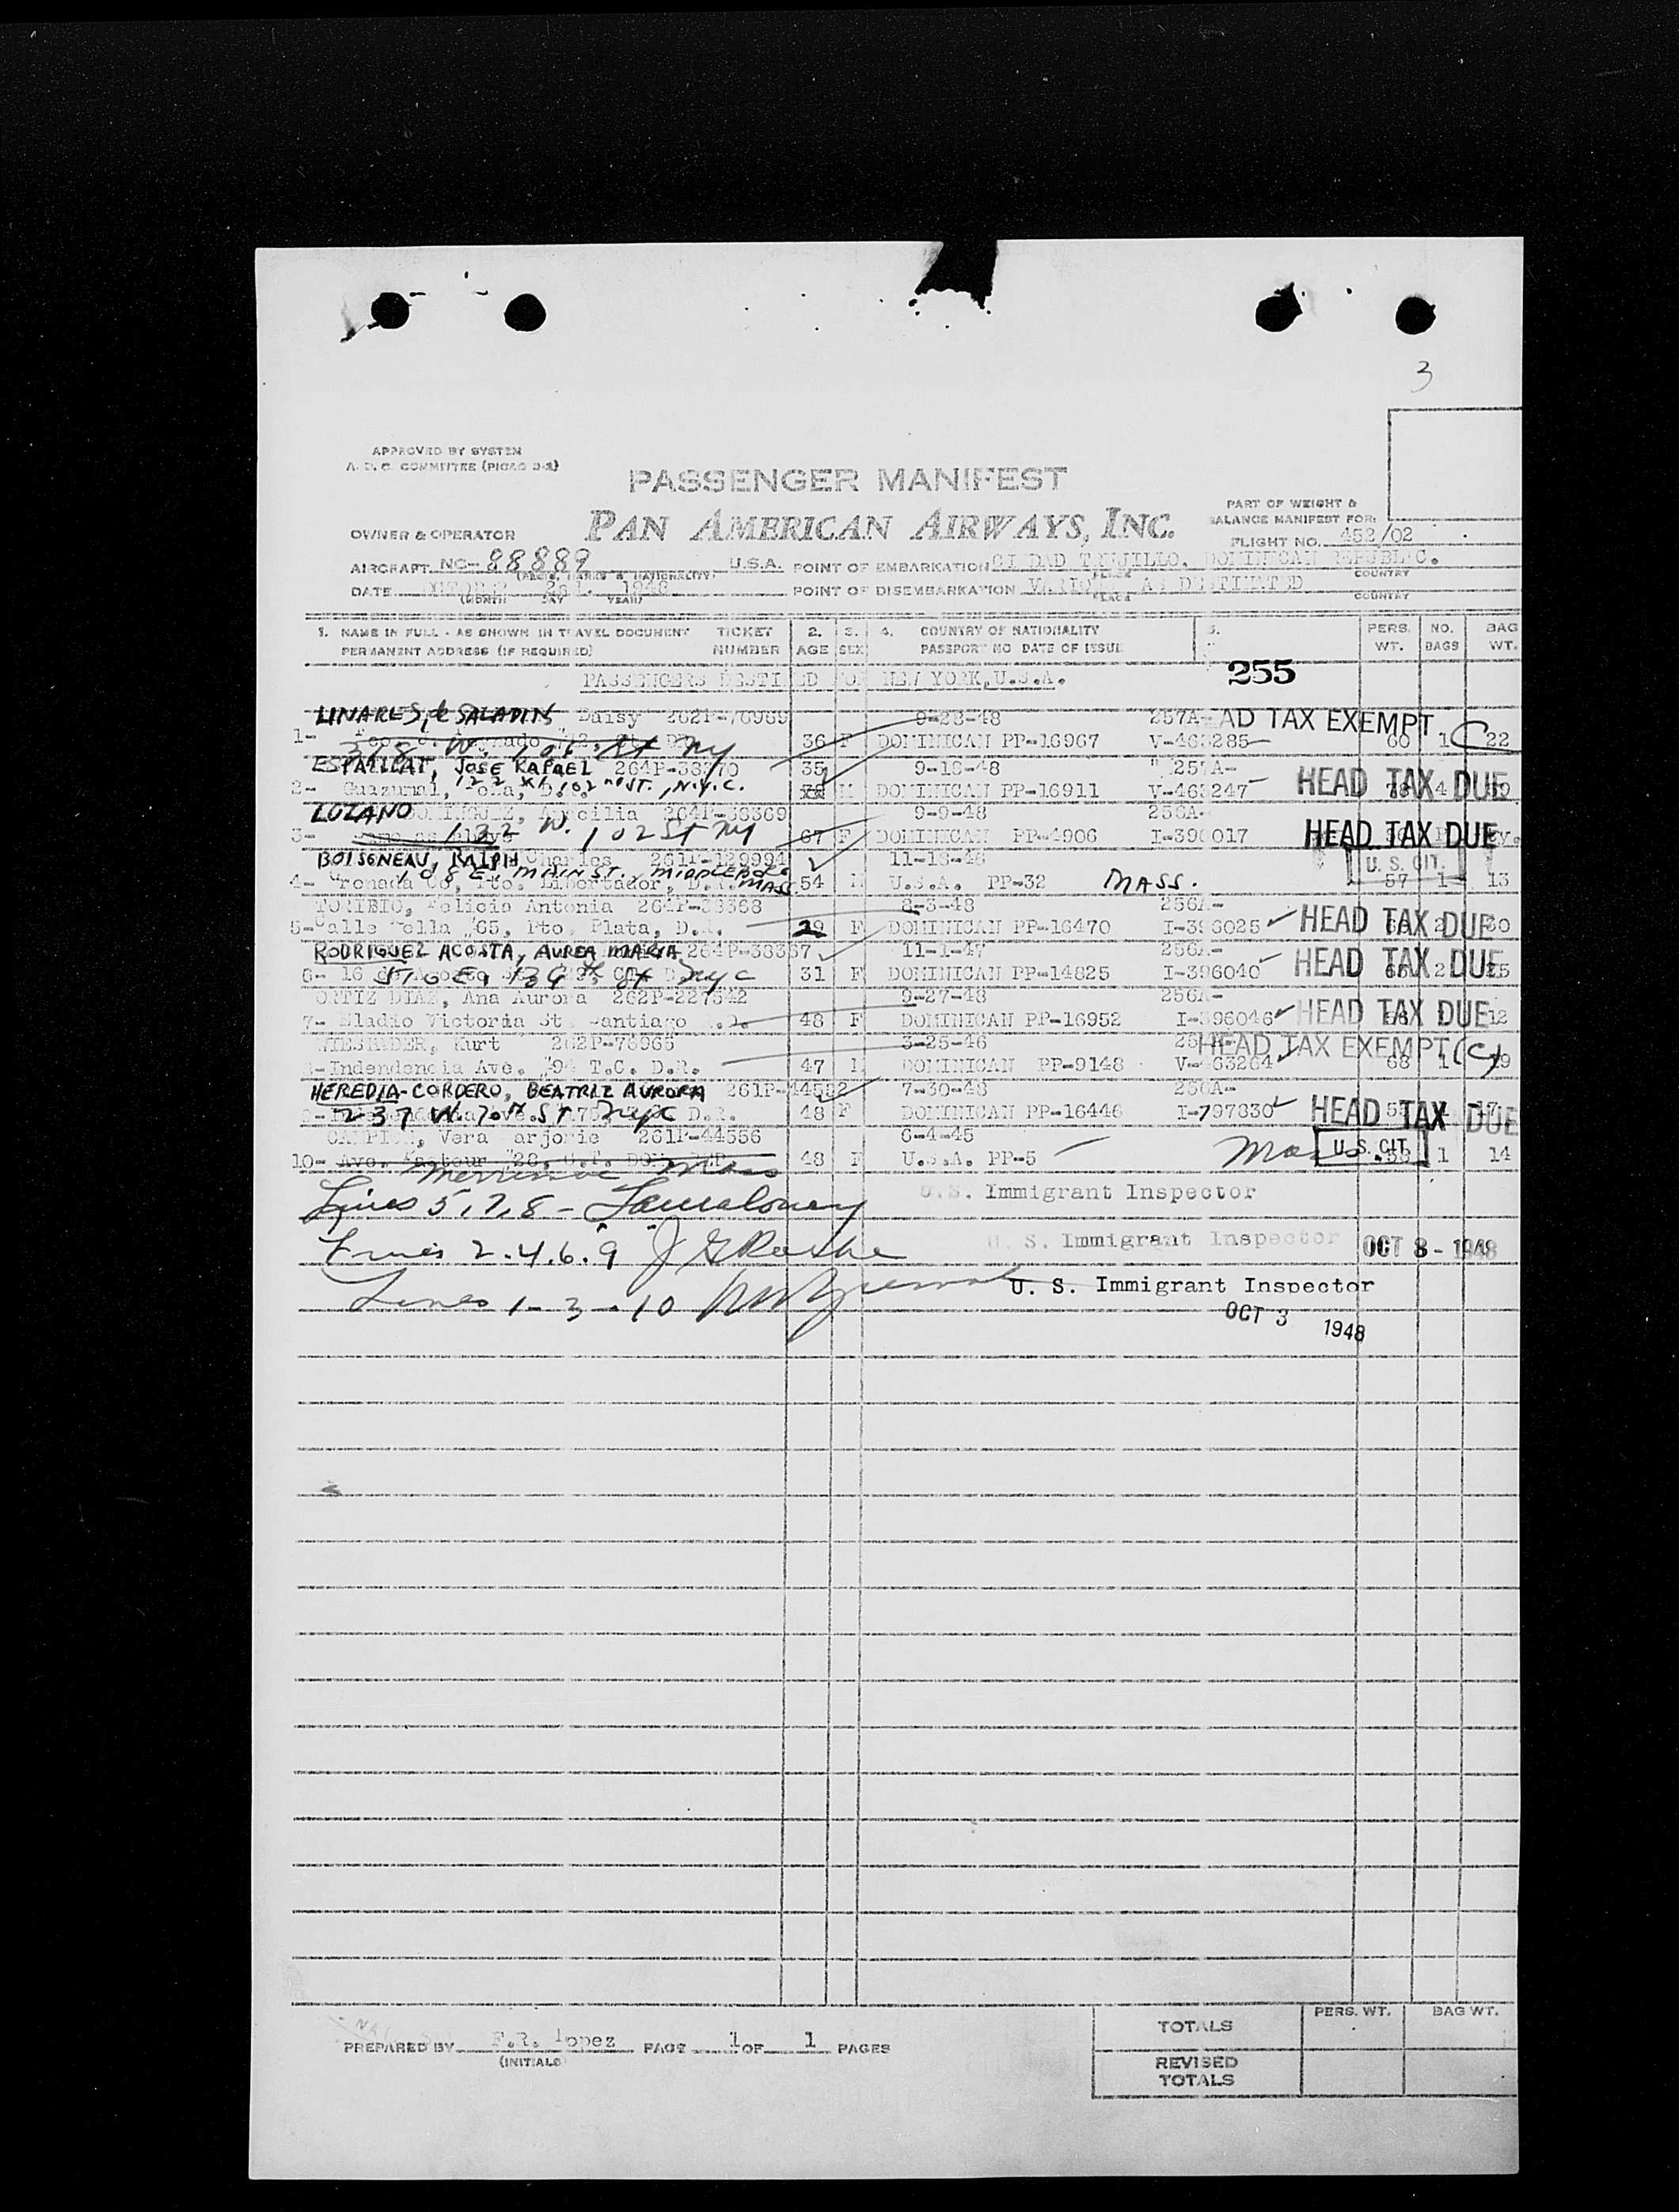 3
APPROVED BY SYSTEM
A. D. C. COMMITTEE (PICAO 2-2)
PASSENGER MANIFEST
PAN AMERICAN AIRWAYS, INC.
PART OF WEIGHT &
BALANCE MANIFEST FOR:
OWNER & OPERATOR
FLIGHT NO. 452/02
AIRCRAFT NC-88889 U.S.A. POINT OF EMBARKATION CIUDAD TRUJILLO, DOMINICAN REPUBLIC.
(REGIS. MARKS & NATIONALITY) PLACE COUNTRY
DATE 1948 POINT OF DISEMBARKATION VARIOUS AS DESTINTED
(MONTH DAY YEAR) PLACE COUNTRY
1. NAME IN FULL - AS SHOWN IN TRAVEL DOCUMENT TICKET 2. 3. 4. COUNTRY OF NATIONALITY 5. PERS. NO. BAG
PERMANENT ADDRESS (IF REQUIRED) NUMBER AGE SEX PASSPORT NO DATE OF ISSUE WT. BAGS WT.
PASSENGERS DESTINED FOR NEW YORK, U.S.A. 255
LINARES, de SALADIN Daisy 262P-76959 9-28-48 257A- AD TAX EXEMPT
1- 368 W. St NY 36 F DOMINICAN PP-16967 V-463285 60 1 C 22
ESPAILLAT, JOSE RAFAEL 264P-38370 35 9-16-48 257A-
2- Guazumal, 102nd ST., N.Y.C. M DOMINICAN PP-16911 V-463247 HEAD TAX DUE
LOZANO DOMINGUEZ, Ancilia 264P-38369 9-9-48 256A-
3- 132 W. 102 St NY 67 F DOMINICAN PP-4906 I-396017 HEAD TAX DUE
BOISONEAU, RALPH Charles 261P-129994 11-18-46 U. S. CIT.
4- 108 E. MAIN ST., MIDDLEBORO MASS 54 M U.S.A. PP-32 MASS. 57 1 13
TORIBIO, Felicia Antonia 264P-38368 8-3-48 256A-
5- Calle Sella #65, Pto. Plata, D.R. 29 F DOMINICAN PP-16470 I-396025 HEAD TAX DUE
RODRIGUEZ ACOSTA, AUREA MARIA 264P-38367 11-1-47 256A-
6- 16 510 E. 139th St NYC 31 F DOMINICAN PP-14825 I-396040 HEAD TAX DUE
ORTIZ DIAZ, Ana Aurora 262P-227542 9-27-48 256A-
7- Eladio Victoria St. Santiago D.R. 48 F DOMINICAN PP-16952 I-396046 HEAD TAX DUE 12
Kurt 262P-76965 3-25-46 HEAD TAX EXEMPT (C)
8- Indendencia Ave. #94 T.C. D.R. 47 M DOMINICAN PP-9148 V-463264 68 1 19
HEREDIA-CORDERO, BEATRIZ AURORA 261P-44552 7-30-48 256A-
9- 237 W. 70th ST NYC D.R. 48 F DOMINICAN PP-16446 I-797830 HEAD TAX DUE
CAMPION, Vera Marjorie 261P-44556 6-4-45
10- Ave. Pasteur #28, C.T. DOM. REP. 48 F U.S.A. PP-5 Mass. U. S. CIT. 58 1 14
Merrimac Mass
Lines 5, 7, 8 - U.S. Immigrant Inspector
Lines 2.4.6.9 U. S. Immigrant Inspector OCT 3 - 1948
Lines 1 - 3 - 10 U. S. Immigrant Inspector
OCT 3 1948
PERS. WT. BAG WT.
TOTALS
PREPARED BY F.R. Lopez PAGE 1 OF 1 PAGES
(INITIALS)
REVISED
TOTALS